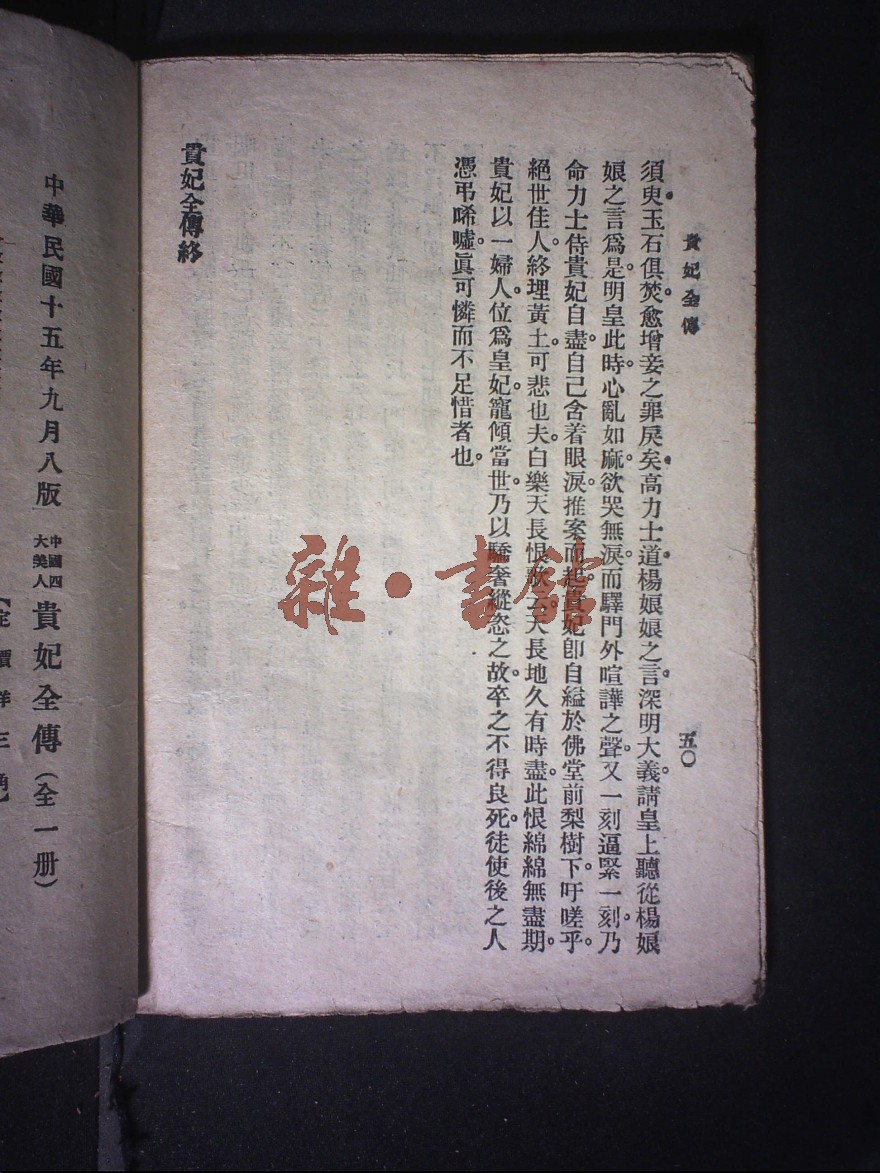 貴妃全傳
五〇
須臾玉石俱焚。愈增妾之罪戾矣。高力士道。楊娘娘之言。深明大義。請皇上聽從楊娘
娘之言爲是。明皇此時。心亂如麻。欲哭無淚。而驛門外喧譁之聲。又一刻逼緊一刻。乃
命力士侍貴妃自盡。自己含着眼淚。推案而起。貴妃卽自縊於佛堂前梨樹下。吁嗟乎。
絕世佳人。終埋黃土。可悲也夫。白樂天長恨歌云。天長地久有時盡。此恨綿綿無盡期。
貴妃以一婦人。位爲皇妃。寵傾當世。乃以驕奢縱恣之故。卒之不得良死。徒使後之人
憑弔唏噓。眞可憐而不足惜者也。
貴妃全傳終
雜·書館
中華民國十五年九月八版
中國四
大美人
貴妃全傳(全一册)
【定價洋三角】